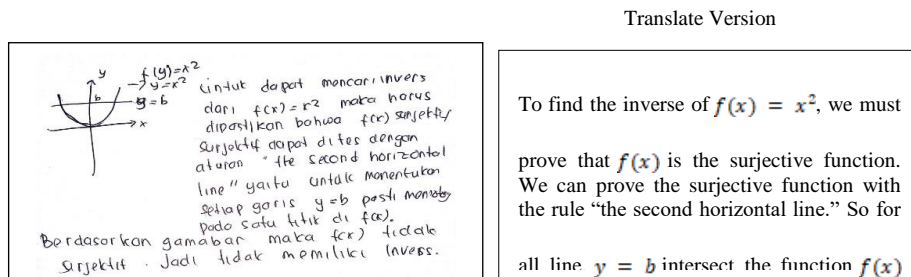 Translate Version
y
f(y)=x²
→ y=x²
b
y=b
x
Untuk dapat mencari invers
dari f(x) = x² maka harus
dipastikan bahwa f(x) surjektif
Surjektif dapat dites dengan
aturan "the second horizontal
line" yaitu untuk menentukan
setiap garis y=b pasti
pada satu titik di f(x).
Berdasarkan gamabar maka f(x) tidak
surjektif. Jadi tidak memiliki invers.
To find the inverse of f(x) = x², we must
prove that f(x) is the surjective function.
We can prove the surjective function with
the rule “the second horizontal line.” So for
all line y = b intersect the function f(x)